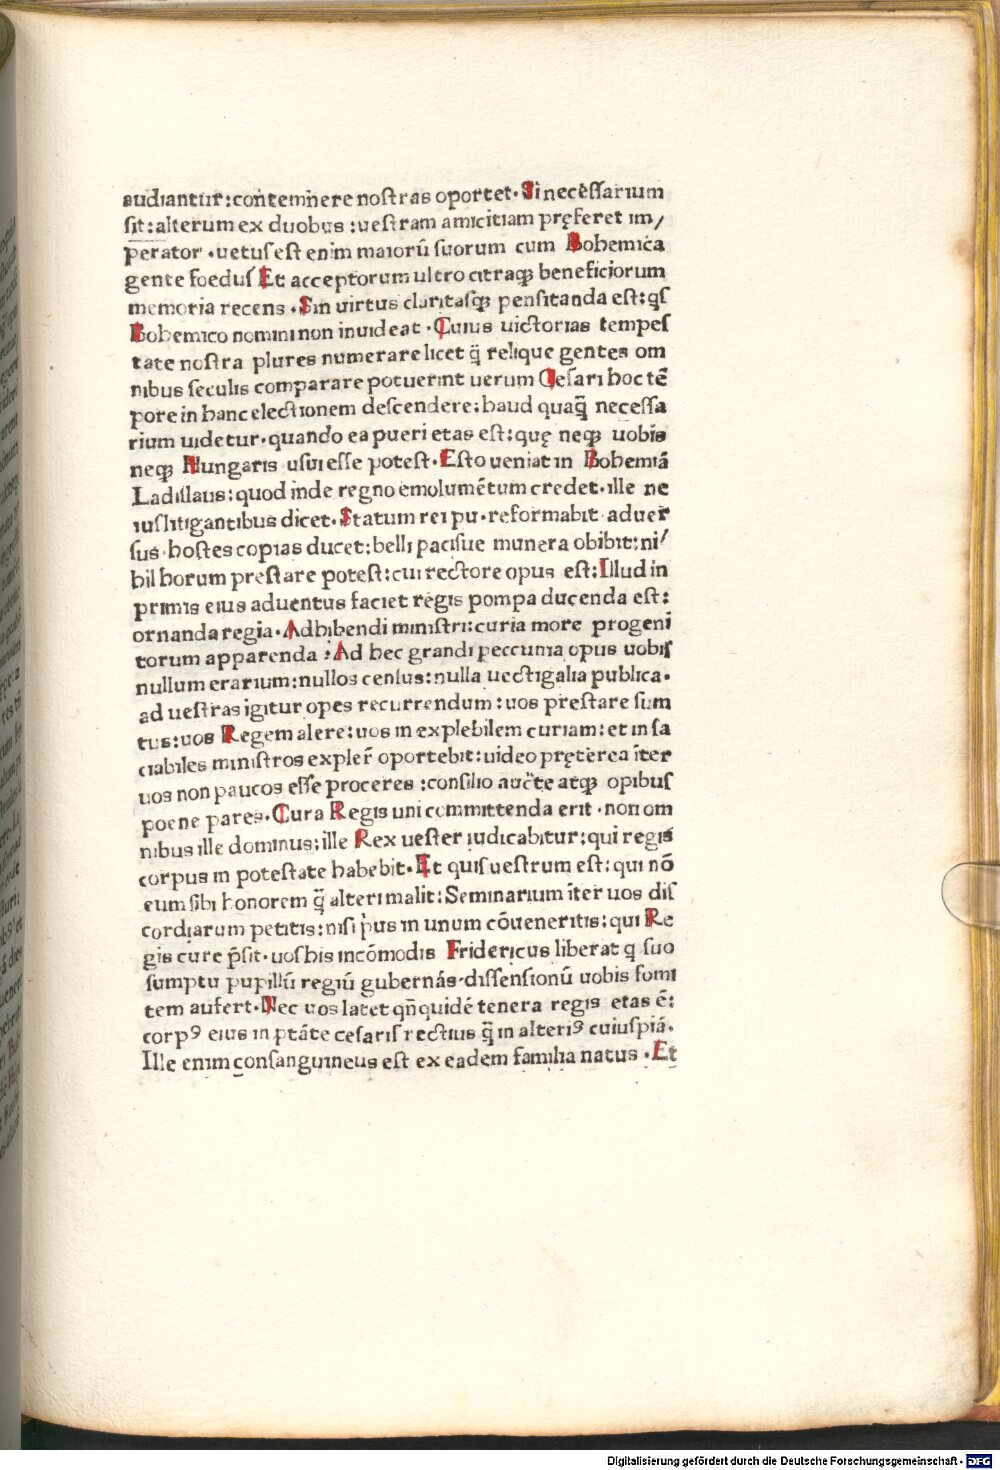 audiantur:contemn̄ere nostras oportet·Si necessarium
sit:alterum ex duobus:uestram amicitiam pręferet im/
perator·uetus est enim maiorū suorum cum Bohemica
gente foedus Et acceptorum ultro citraqȝ beneficiorum
memoria recens·Sin uirtus claritasqȝ pensitanda est:qs
Bohemico nomini non inuideat·Cuius uictorias tempes
tate nostra plures numerare licet q̄ relique gentes om
nibus seculis comparare potuerint uerum Cesari hoc tē
pore in hanc electionem descendere:haud quaq̄ necessa
rium uidetur·quando ea pueri etas est:quę neqȝ uobis
neqȝ Hungaris usui esse potest·Esto ueniat in Bohemiā
Ladislaus:quod inde regno emolumētum credet·ille ne
ius litigantibus dicet·Statum rei pu·reformabit aduer
sus·hostes copias ducet:belli pacisue munera obibit:ni/
hil horum prestare potest:cui rectore opus est:Illud in
primis eius aduentus faciet regis pompa ducenda est:
ornanda regia·Adhibendi ministri:curia more progeni
torum apparenda:Ad hec grandi peccunia opus uobis
nullum erarium:nullos census:nulla uectigalia publica·
ad uestras igitur opes recurrendum:uos prestare sum
tus:uos Regem alere:uos in explebilem curiam:et in sa
ciabiles ministros expler̄ oportebit:uideo pręterea īter
uos non paucos esse proceres:consilio auc̄te atqȝ opibus
poene pares·Cura Regis uni committenda erit·non om
nibus ille dominus:ille Rex uester iudicabitur:qui regis
corpus in potestate habebit·Et quis uestrum est:qui nō
eum sibi honorem q̄ alteri malit:Seminarium īter uos dis
cordiarum petitis:nisi p̄us in unum cōueneritis:qui Re
gis cure p̄sit·uos his incōmodis Fridericus liberat q suo
sumptu pupillū regiū gubernās·dissensionū uobis fomi
tem aufert·Nec uos latet qn̄quidē tenera regis etas ē:
corpꝰ eius in ptāte cesaris rectius q̄ in alteriꝰ cuiuspiā·
Ille enim consanguineus est ex eadem familia natus·Et
Digitalisierung gefördert durch die Deutsche Forschungsgemeinschaft - DFG